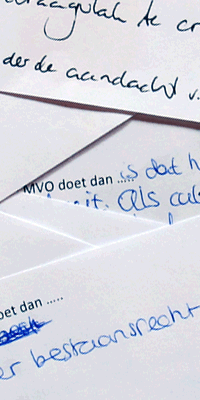 de
der de aandacht v.
MVO doet dan ..... is dat h
it. als
oet dan .....
er bestaansrecht